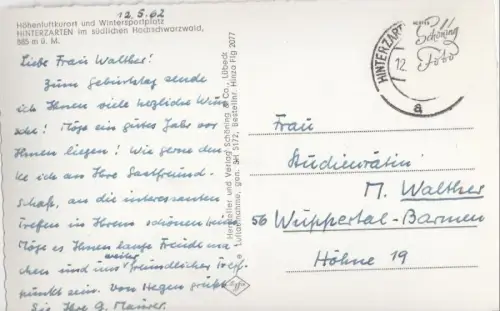 12.5.62
Höhenluftkurort und Wintersportplatz
HINTERZARTEN im südlichen Hochschwarzwald,
885 m ü. M.
Liebe Frau Walther!
Zum Geburtstag sende
ich Ihnen viele herzliche Wün
sche! Möge ein gutes Jahr vor
Ihnen liegen! Wie gerne den
ke ich an Ihre Gastfreund-
schaft, an die interessanten
Treffen in Ihrem schönen
Möge es Ihnen lange Freude ma
chen und uns weiter freundlicher Treff
punkt sein. Von Hegen grüßt
Sie Ihre G. Maurer.
Hersteller und Verlag Schöning & Co., Lübeck
Luftaufnahme: gen. SH 5172, Bestellnr. Hinza Flg 2077
HINTERZART
12.
a
Schöning
Foto
Frau
Studienrätin
M. Walther
56 Wuppertal-Barmen
Höhne 19